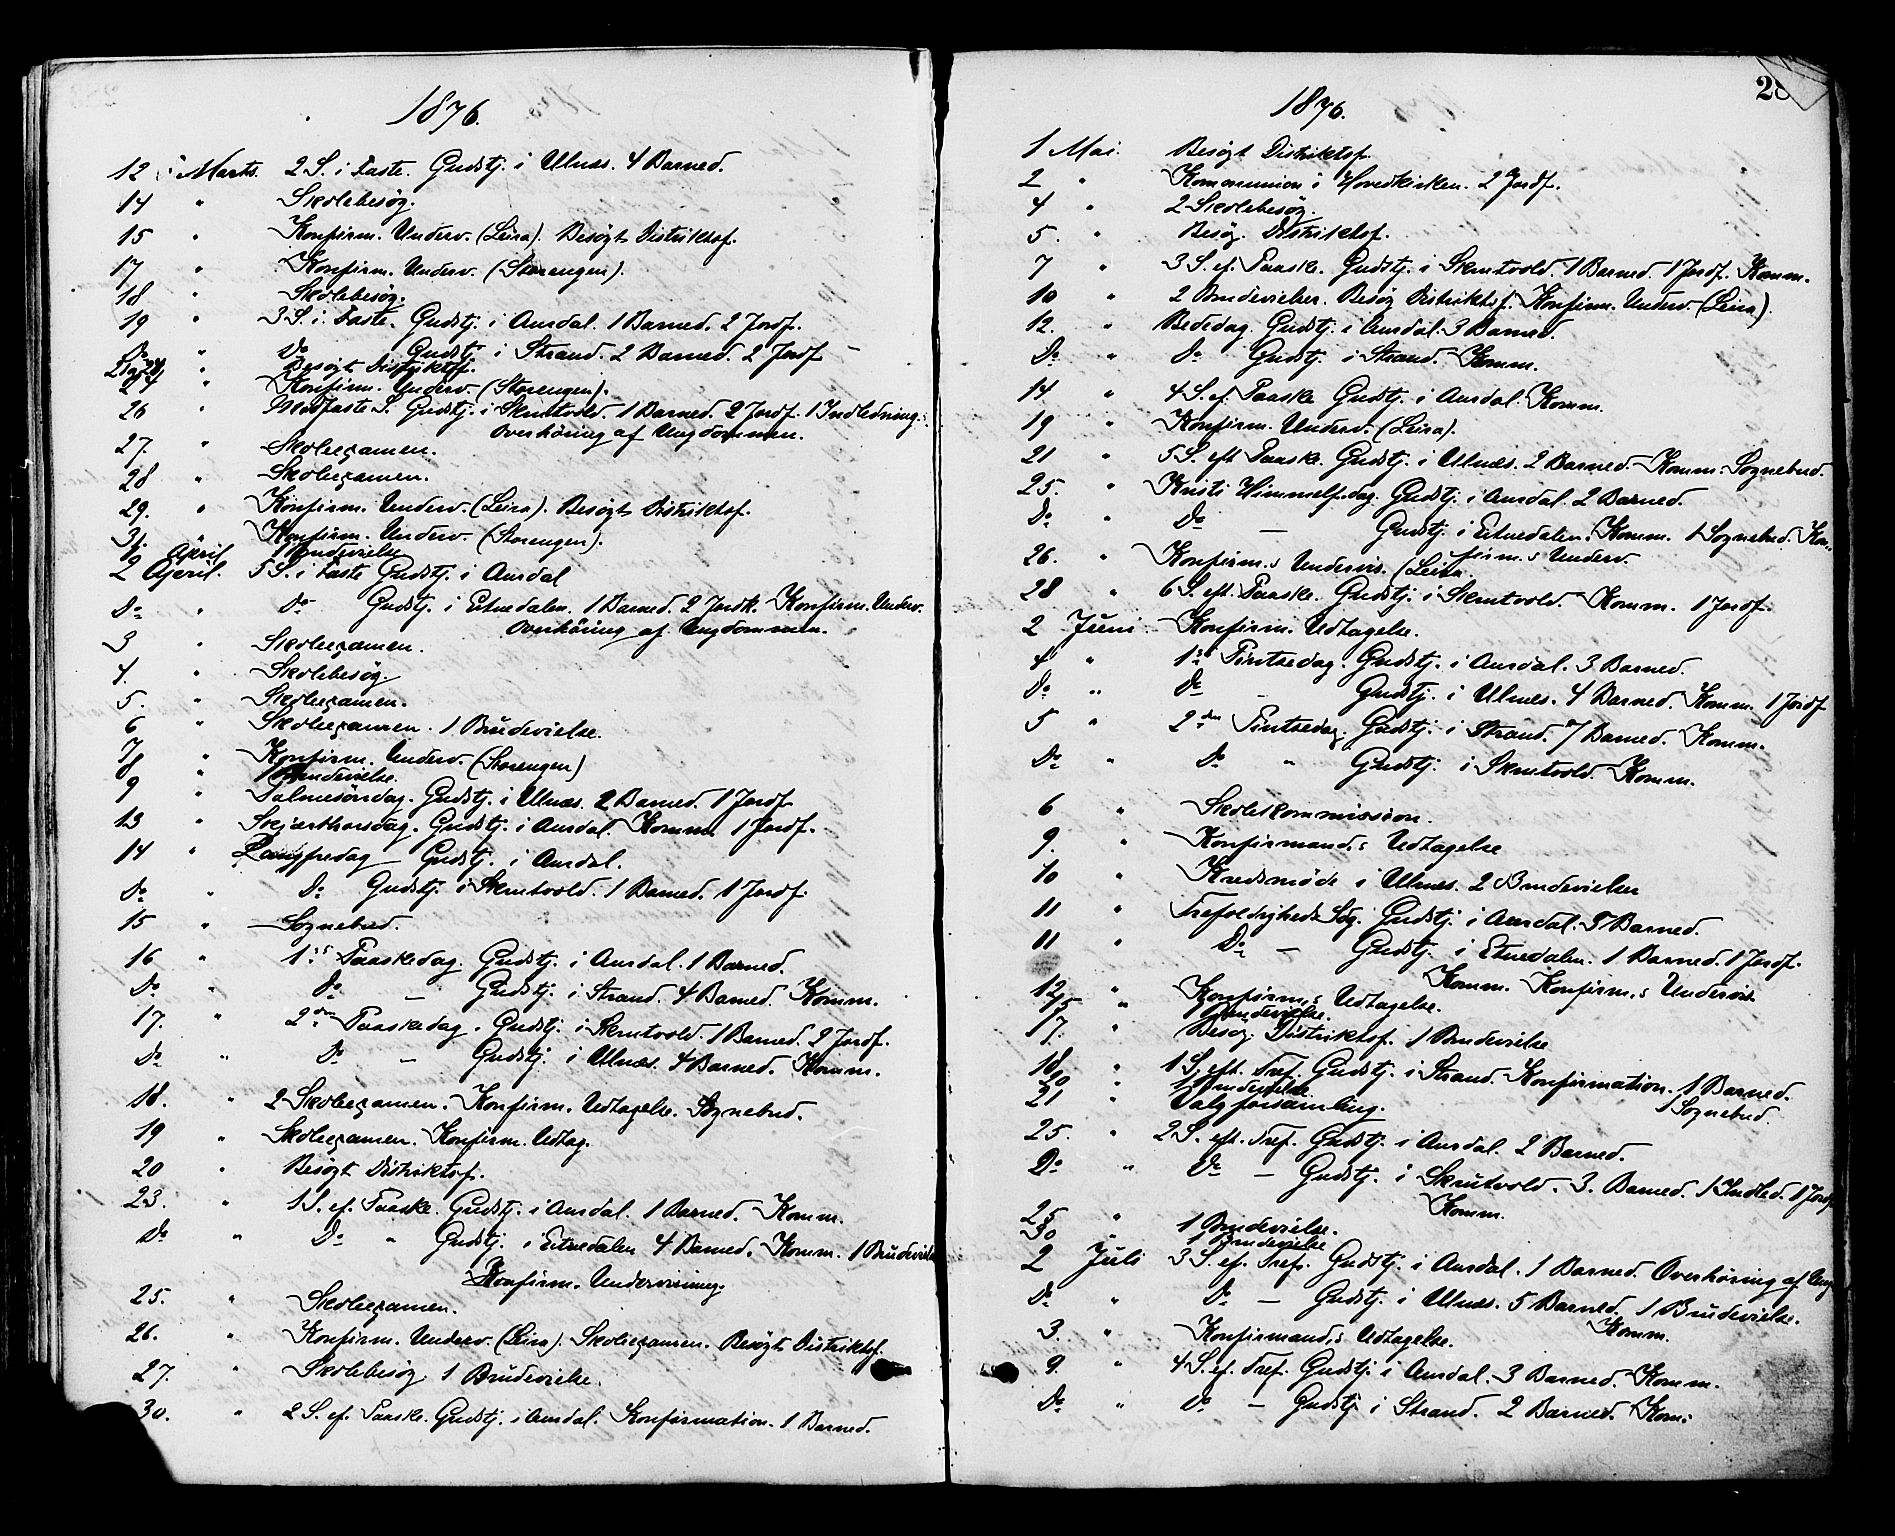 1876.
12 Marts. 2 S. i Faste. Gudstj. i Ulnæs. 4 Barned.
14 " Skolebesøg.
15 " Konfirm. Underv. (Leira). Besøgt Distriktsf.
17 " Konfirm. Underv. (Storengen).
18 " Skolebesøg.
19 " 3 S. i Faste. Gudstj. i Aurdal. 1 Barned. 2 Jordf.
Do " Do Gudstj. i Strand. 2 Barned. 2 Jordf
" Besøgt Distriktsf.
" Konfirm. Underv. (Storengen).
26 " Midfaste S. Gudstj. i Skrutvold 1 Barned. 2 Jordf. 1 Indledning.
Overhöring af Ungdommen.
27. " Skoleexamen.
28 " Skoleexamen.
29. " Konfirm. Underv. (Leira). Besøgt Distriktsf.
31. " Konfirm. Underv. (Storengen).
1 April 1 Brudevielse
2 April. 5 S. i Faste Gudstj. i Aurdal
Do " Do Gudstj. i Etnedalen. 1 Barned. 2 Jordf. Konfirm. Underv.
Overhöring af Ungdommen.
3 " Skoleexamen.
4. " Skolebesøg.
5. " Skoleexamen.
6 " Skoleexamen. 1 Brudevielse.
7 " Konfirm. Underv. (Storengen)
8 " 1 Brudevielse.
9 " Palmesöndag. Gudstj. i Ulnæs. 2 Barned. 1 Jordf
13 " Skjærthorsdag. Gudstj. i Aurdal. Komm. 1 Jordf.
14 " Langfredag Gudstj. i Aurdal.
Do " Do Gudstj. i Skrutvold. 1 Barned. 1 Jordf.
15 " Sognebud.
16 " 1ste Paaskedag. Gudstj. i Aurdal. 1 Barned.
Do " Do — Gudstj. i Strand. 4 Barned. Komm.
17. " 2den Paaskedag. Gudstj. i Skrutvold. 1 Barned. 2 Jordf.
Do " Do — Gudstj. i Ulnæs. 4 Barned. Komm.
18. " 2 Skoleexamen. Konfirm. Udtagelse. Sognebud.
19 " Skoleexamen. Konfirm. Udtag.
20 " Besøgt Distriktsf.
23. " 1 S. ef. Paaske. Gudstj. i Aurdal. 1 Barned. Komm.
Do " Do " Gudstj. i Etnedalen 4 Barned. Komm. 1 Brudevielse
Konfirm. Undervisning.
25. " Skoleexamen.
26. " Konfirm. Underv. (Leira). Skoleexamen. Besøgt Distriktsf.
27. " Skolebesøg. 1 Brudevielse.
30. " 2 S. ef. Paaske. Gudstj. i Aurdal. Konfirmation. 1 Barned.
28
1876.
1 Mai. Besøgt Distriktsf.
2 " Kommunion i Hovedkirken. 2 Jordf.
4 " 2 Skolebesøg.
5. " Besøg. Distriktsf.
7 " 3 S. ef. Paaske. Gudstj. i Skrutvold. 1 Barned. 1 Jordf. Komm.
10 " 2 Brudevielser. Besøg Distriktsf. Konfirm. Underv. (Leira).
12. " Bededag. Gudstj. i Aurdal. 3 Barned.
Do " Do Gudstj. i Strand. Komm.
14 " 4 S. ef. Paaske Gudstj. i Aurdal. Komm.
19 " Konfirm. Underv. (Leira).
21 " 5 S. eft Paaske. Gudstj. i Ulnæs. 2 Barned. Komm. Sognebud.
25. " Kristi Himmelf.dag. Gudstj. i Aurdal. 2 Barned.
Do " Do — Gudstj. i Etnedalen. Komm. 1 Sognebud. Kon-
firm.s Underv.
26. " Konfirm.s Undervis. (Leira
28 " 6 S. eft. Paaske. Gudstj. i Skrutvold. Komm. 1 Jordf.
2 Juni. Konfirm. Udtagelse.
4 " 1ste Pintsedag. Gudstj. i Aurdal. 3 Barned.
Do " Do - Gudstj. i Ulnæs. 4 Barned. Komm. 1 Jordf
5 " 2den Pintsedag. Gudstj. i Strand. 7 Barned. Komm.
Do " Do " Gudstj. i Skrutvold. Komm.
6 " Skolekommission.
9. " Konfirmand.s Udtagelse
10 " Kredsmöde i Ulnæs. 2 Brudevielser
11 " Trefoldigheds Søg. Gudstj. i Aurdal. 5 Barned.
11 " Do — Gudstj. i Etnedalen. 1 Barned. 1 Jordf.
Komm. Konfirm.s Undervis.
12 " Konfirm.s Udtagelse.
15 " 1 Brudevielse.
17. " Besøg. Distriktsf. 1 Brudevielse
18 " 1 S. eft. Tref. Gudstj. i Strand. Konfirmation. 1 Barned.
Sognebud.
20 " 1 Brudevielse
21 " Valgforsamling.
25. " 2 S. eft. Tref. Gudstj. i Aurdal. 2 Barned.
Do " Do — Gudstj. i Skrutvold. 3. Barned. 1 Indled. 1 Jordf
Komm.
" 1 Brudevielse.
30 " Brudevielse
2 Juli 3 S. ef. Tref. Gudstj. i Aurdal. 1 Barned. Overhöring af Ung
Do " Do — Gudstj. i Ulnæs. 5 Barned. 1 Brudevielse.
Komm.
3. " Konfirmand.s Udtagelse.
9. " 4 S. ef. Tref. Gudstj. i Aurdal. 3 Barned. Komm.
Do " Do — Gudstj i Strand. 2 Barned. Kom.